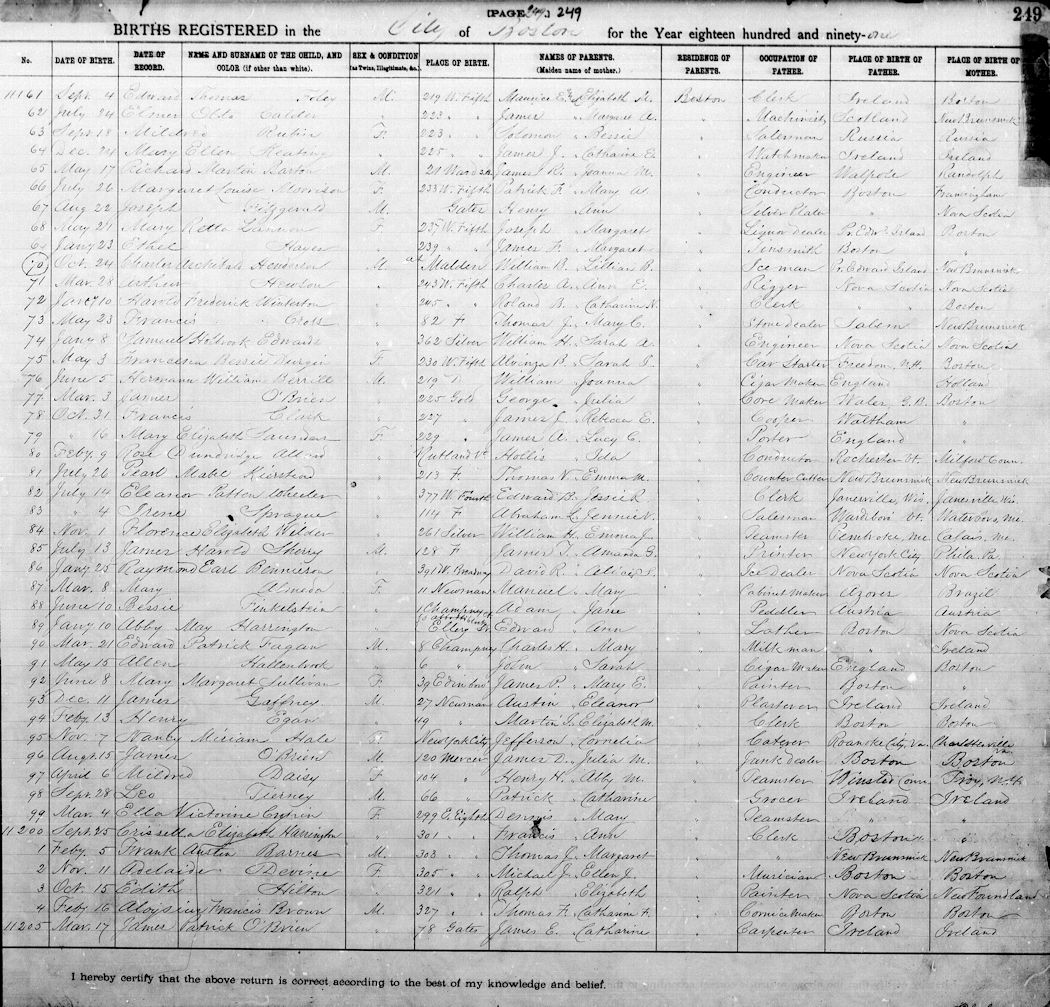 [PAGE 249] 249
249
BIRTHS REGISTERED in the City of Boston for the Year eighteen hundred and ninety-one
No. DATE OF BIRTH. DATE OF RECORD. NAME AND SURNAME OF THE CHILD, AND COLOR (if other than white). SEX & CONDITION (as Twins, Illegitimate, &c.) PLACE OF BIRTH. NAMES OF PARENTS. (Maiden name of mother.) RESIDENCE OF PARENTS. OCCUPATION OF FATHER. PLACE OF BIRTH OF FATHER. PLACE OF BIRTH OF MOTHER.
11161 Sept. 4 Edward Thomas Foley M. 219 W. Fifth Maurice E. & Elizabeth Boston Clerk Ireland Boston
62 July 24 Elmer Calder " 223 " " James " Margaret A. " Machinist Scotland New Brunswick
63 Sept. 18 Mildred Rubin F. 223 " " Solomon " Bessie " Salesman Russia Russia
64 Dec. 24 Mary Ellen Keating " 225 " " James J. " Catharine E. " Watchmaker Ireland Ireland
65 May 17 Richard Martin Barton M. 21 Ward St. James R. " Joanna M. " Engineer Walpole Randolph
66 July 26 Margaret Louise Morrison F. 233 W. Fifth Patrick F. " Mary A. " Conductor Boston Framingham
67 Aug 22 Joseph Fitzgerald M. Gates Henry " Ann " Silver Plater " Nova Scotia
68 May 21 Mary Retta Gannon F. 237 W. Fifth Joseph " Margaret " Liquor Dealer Pr. Edw. Island Boston
69 Jany 23 Ethel Hayes " 239 " " James F. " Margaret " Tinsmith Boston "
70 Oct. 24 Charles Archibald Henderson M. at Malden William B. " Lillian B. " Ice man Pr. Edward Island New Brunswick
71 Mar. 28 Arthur Hewson " 243 W. Fifth Charles A. " Ann E. " Rigger Nova Scotia Nova Scotia
72 10 Harold Frederick Winterton " 245 " " Roland B. " Catharine N. " Clerk " Boston
73 May 23 Francis Cross " 82 F Thomas J. " Mary C. " Stone Dealer Salem New Brunswick
74 Jany 8 Samuel Holbrook Edwards " 362 Silver William H. " Sarah A. " Engineer Nova Scotia Nova Scotia
75 May 3 Francesca Bessie Durgin F. 230 W. Fifth Alvinza B. " Sarah " Car Starter Freedom, N.H. Boston
76 June 5 Hermann William Berrill M. 219 D William " Joanna " Cigar Maker England Holland
77 Mar. 3 James O'Brien " 225 Gold George " Julia " Core Maker Wales, G.B. Boston
78 Oct. 31 Francis Clark " 227 " James J. " Rebecca E. " Cooper Waltham "
79 " 16 Mary Elizabeth Saunders F. 229 " James A. " Lucy C. " Porter England "
80 Feby. 9 Rose Dundridge Allard " Rutland Vt. Hollis " Ida " Conductor Rochester Vt. Milford Conn.
81 July 26 Pearl Mabel Kierstead " 213 F Thomas V. " Emma M. " Counter Cutter New Brunswick New Brunswick
82 July 14 Eleanor Patten Wheeler " 377 W. Fourth Edward B. " Jessie R. " Clerk Janesville, Wis. Janesville Wis.
83 " 4 Irene Sprague " 114 F Abraham L. " Jennie V. " Salesman Vt. Waterboro, Me.
84 Nov. 1 Florence Elizabeth Wilder " 261 Silver William H. " Emma J. " Teamster Pembroke, Me. Calais, Me.
85 July 13 James Harold Sherry M. 128 F James T. " Amanda G. " Printer New York City Phila. Pa.
86 Jany. 25 Raymond Earl Bennison " 391 W. Broadway David R. " " Ice Dealer Nova Scotia Nova Scotia
87 Mar. 8 Mary Almeda F. 11 Newman Manuel " Mary " Cabinet Maker Azores Brazil
88 June 10 Bessie Finkelstein " 1 Champney Adam " Jane " Peddler Austria Austria
89 Jany 10 Abby May Harrington " Ellery Edward " Ann " Lather Boston Nova Scotia
90 Mar. 21 Edward Patrick Fagan M. 8 Champney Charles H. " Mary " Milk man " Ireland
91 May 15 Allen Hallenbrook " 6 " John " Sarah " Cigar Maker England Boston
92 June 8 Mary Margaret Sullivan F. 39 James P. " Mary E. " Painter Boston "
93 Dec. 11 James Gaffney M. 27 Newman Austin " Eleanor " Plasterer Ireland Ireland
94 Feby. 13 Henry Egan " 49 " Martin J. " Elizabeth M. " Clerk Boston Boston
95 Nov. 7 Nancy Miriam Hale F. New York City Jefferson " Cornelia " Caterer Roanoke City, Va. Charlottesville Va.
96 Aug. 15 James O'Brien M. 120 Mercer James D. " Julia M. " Junk Dealer Boston Boston
97 April 6 Mildred Daisy F. 104 " Henry H. " Abby M. " Teamster Winsted Conn. Troy, N.H.
98 Sept. 28 Leo Tierney M. 66 " Patrick " Catharine " Grocer Ireland Ireland
99 Mar. 4 Ella Victorine Cronin F. 299 E. Eighth Dennis " Mary " Teamster " "
11200 Sept. 25 Crissella Elizabeth Harrington " 301 " " Francis " Ann " Clerk Boston "
1 Feby. 5 Frank Austin Barnes M. 303 " " Thomas J. " Margaret " " New Brunswick New Brunswick
2 Nov. 11 Adelaide Devine F. 305 " " Michael J. " Ellen J. " Musician Boston Boston
3 Oct. 15 Edith Hilton " 321 " " Ralph " Elizabeth " Painter Nova Scotia New Foundland
4 Feby 16 Aloysius Francis Brown M. 327 " " Thomas F. " Catharine F. " Cornice Maker Boston Boston
11205 Mar. 17 James Patrick O'Brien " 78 Gates James E. " Catharine " Carpenter Ireland Ireland
I hereby certify that the above return is correct according to the best of my knowledge and belief.